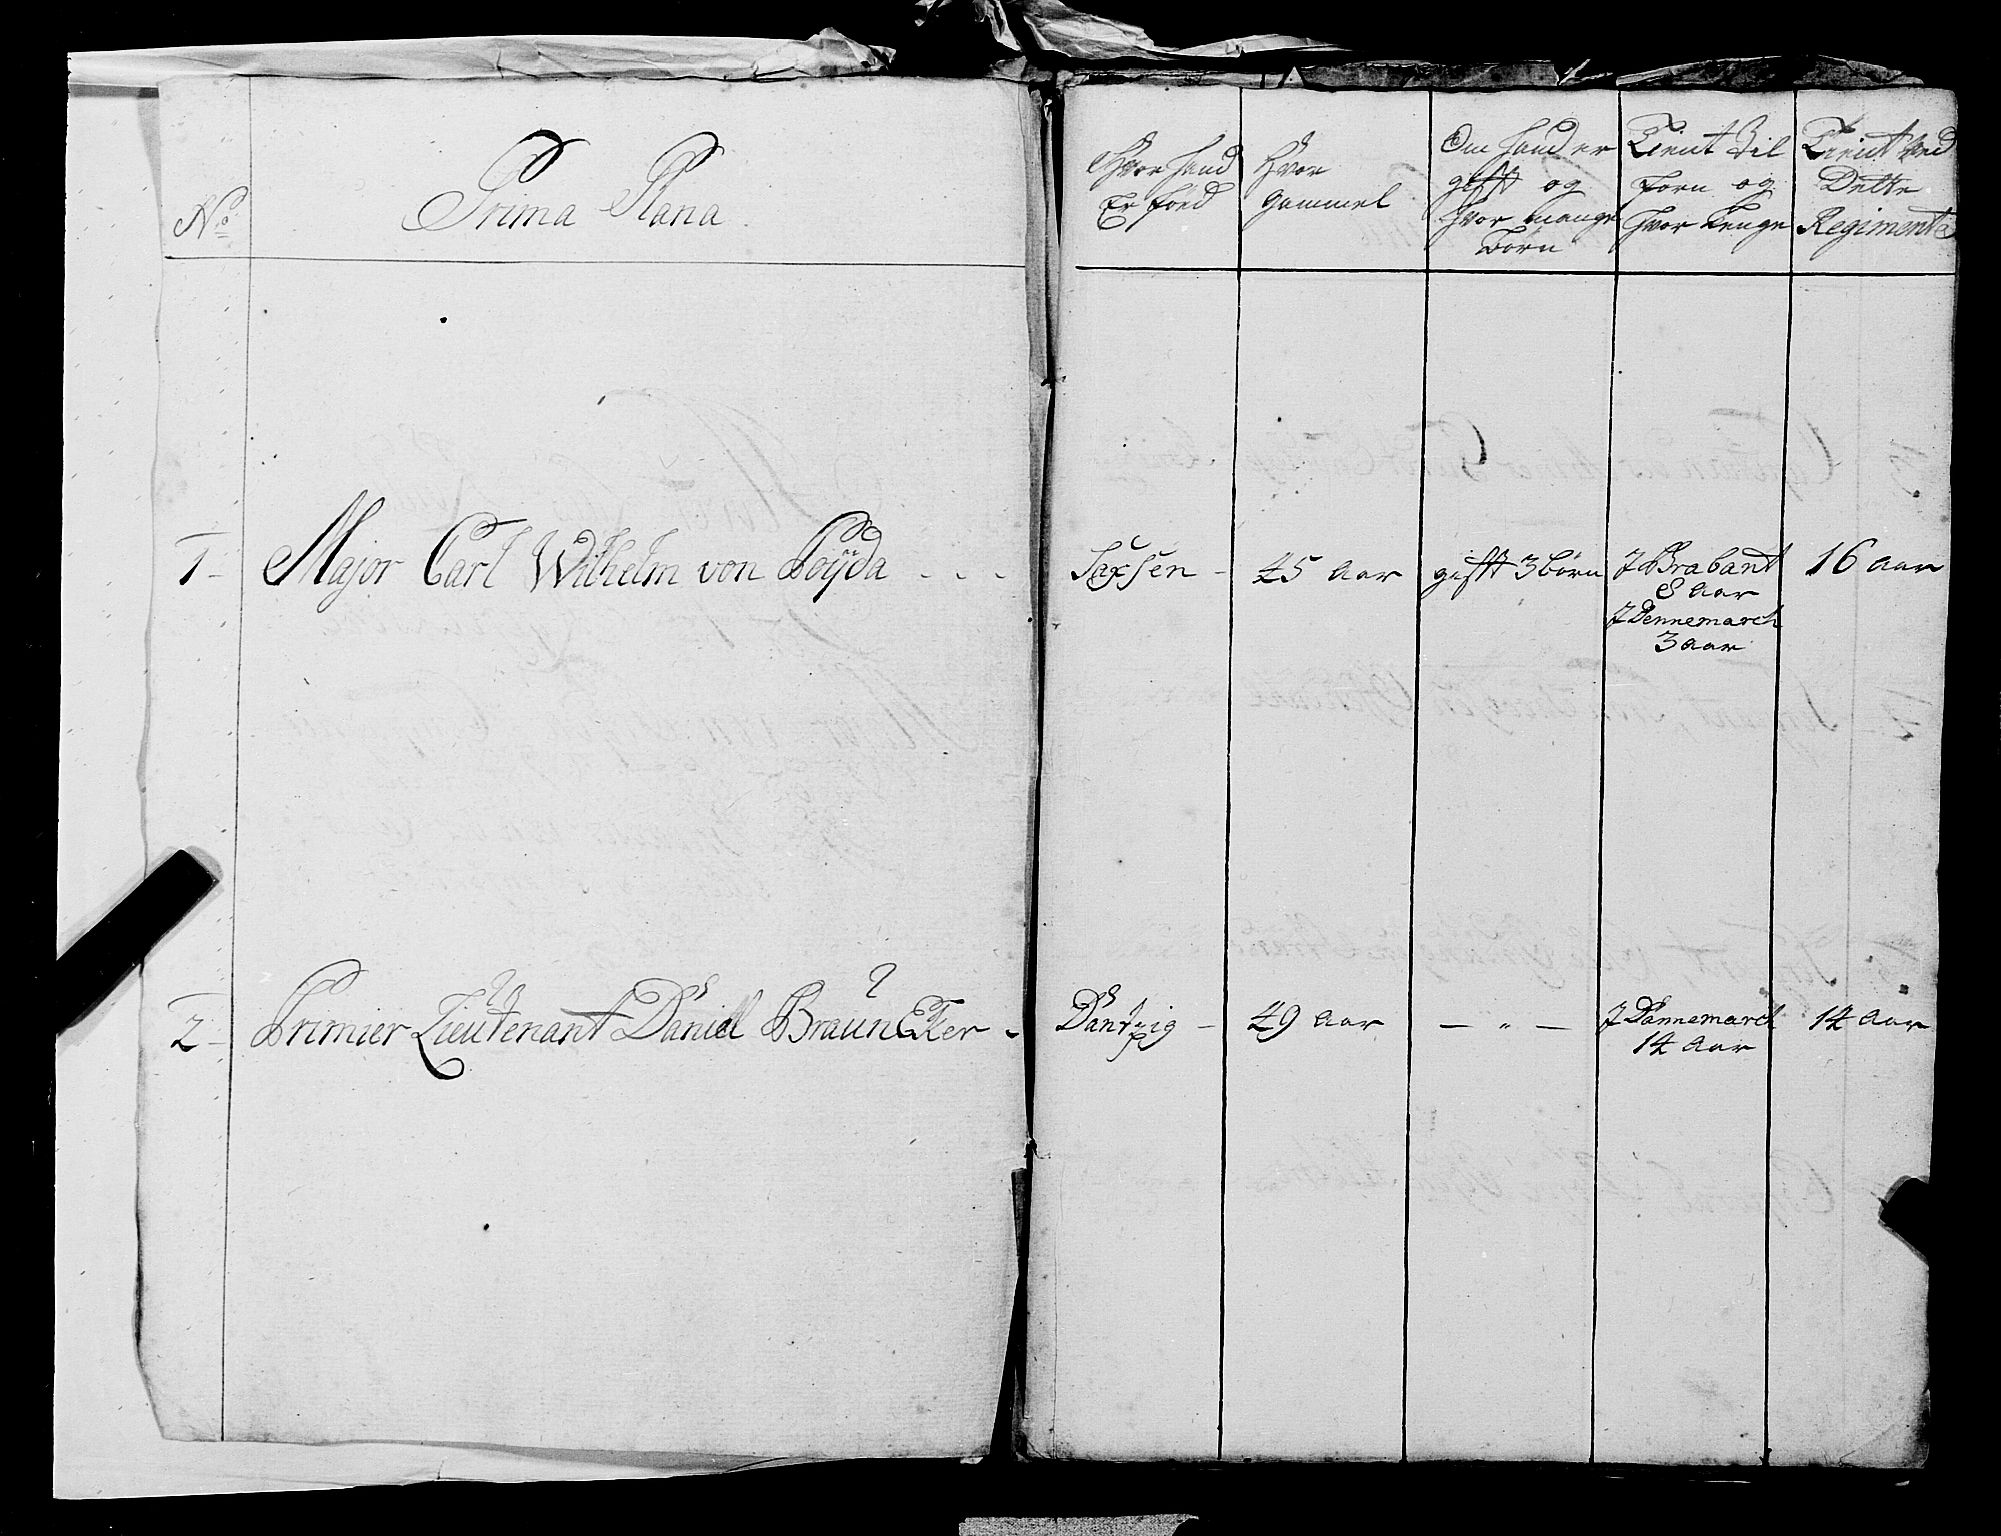 No Prima Plana
Hvor hand
Er föed
Hvor
gammel
Om hand er
gifft og
hvor mange
Börn
Tient Til
forn og
hvor Lenge
Tient ved
Dette
Regimente
1 Major Carl Wilhelm von
Saxsen 45 Aar gifft 3 börn J Brabant
8 Aar
J Dennemarch
3 aar
16 aar
2 Primier Lieutenant Daniell BraunEker
Dantzig 49 aar J Dannemarch
14 Aar
14 Aar